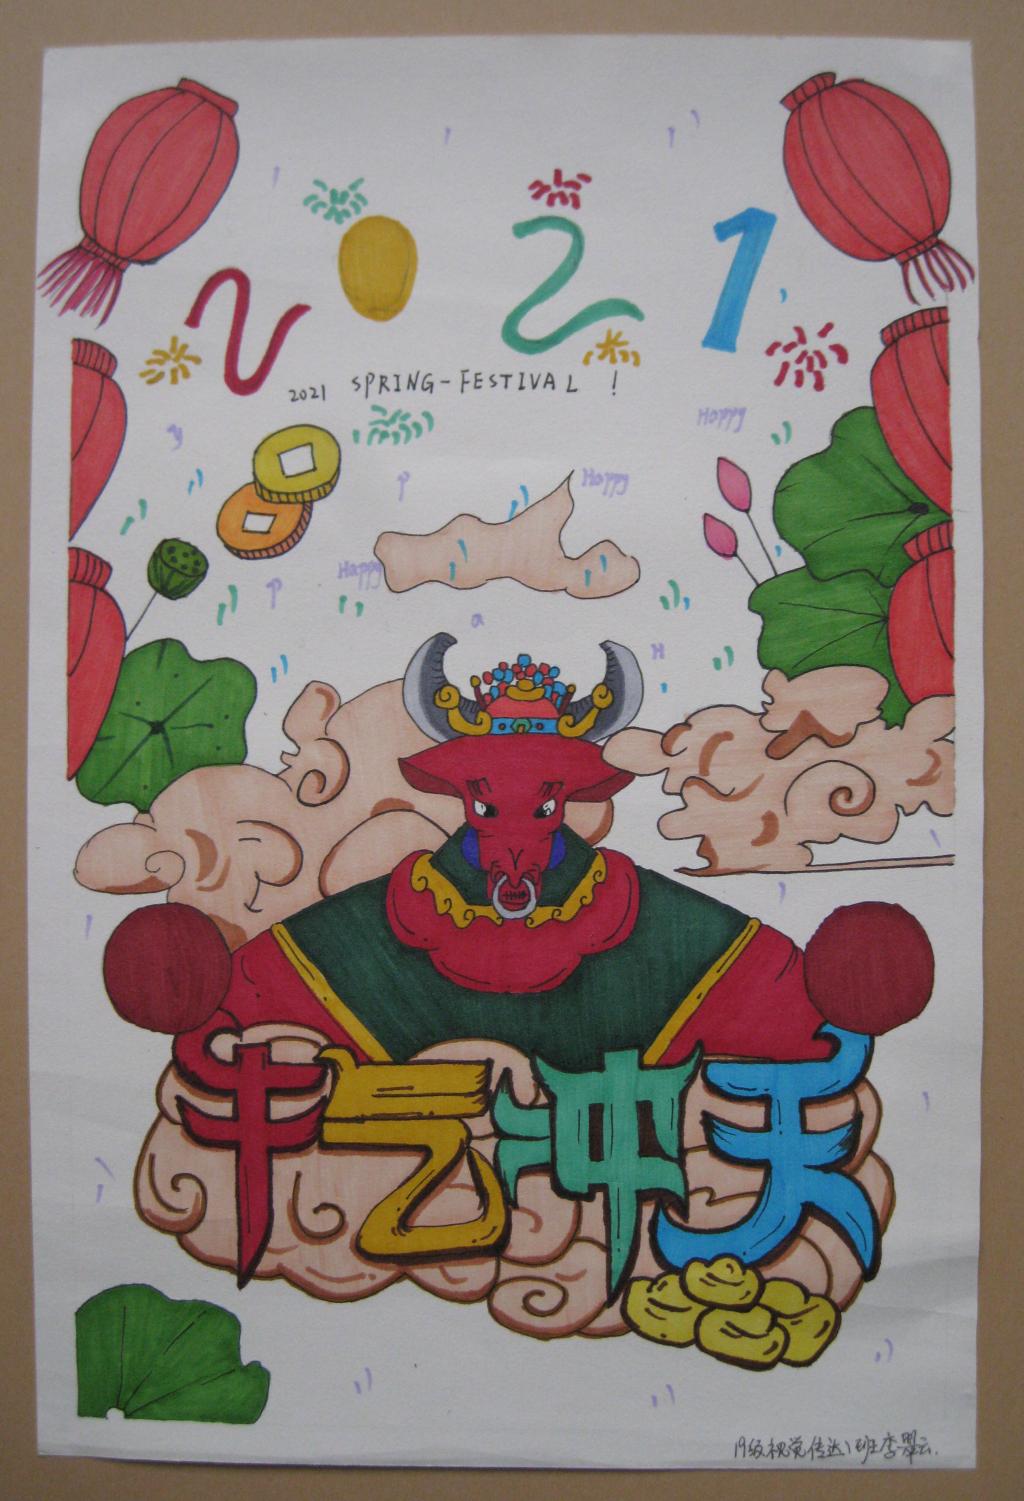 2021
2021 SPRING-FESTIVAL !
Happy
y
P
Happy
Happy
P
a
H
牛气冲天
19级视觉传达1班李翠云.